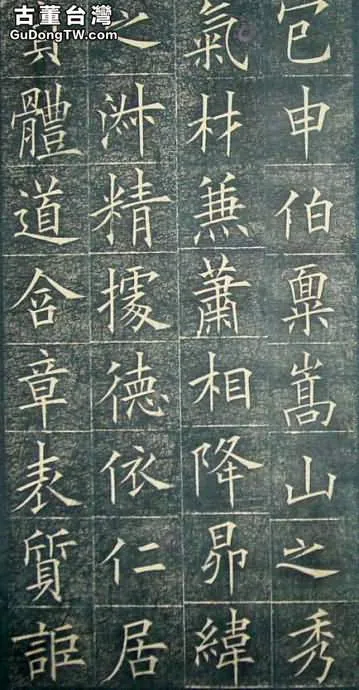 古董台灣
GuDongTW.com
包申伯稟嵩山之秀
氣材兼蕭相降昴緯
之淑精據德依仁居
貞體道含章表質詎